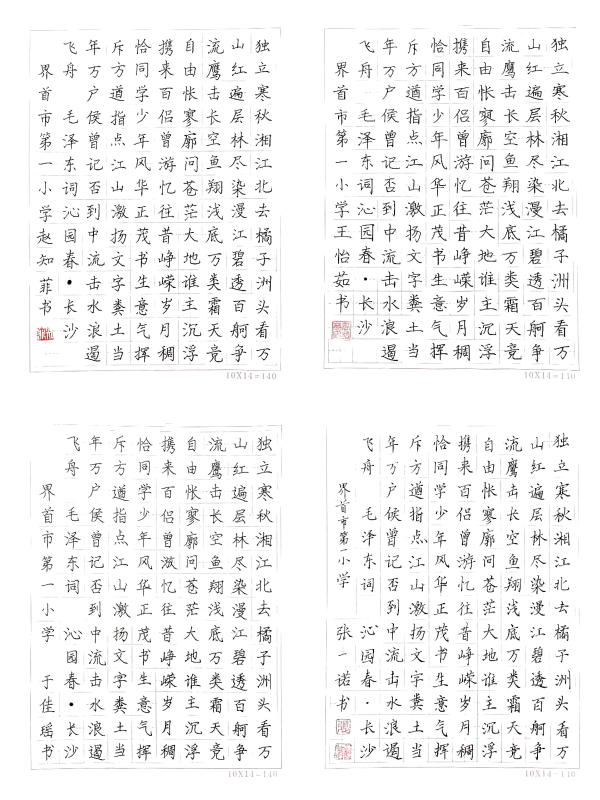 独立寒秋湘江北去橘子洲头看万
山红遍层林尽染漫江碧透百舸争
流鹰击长空鱼翔浅底万类霜天竞
自由怅寥廓问苍茫大地谁主沉浮
携来百侣曾游忆往昔峥嵘岁月稠
恰同学少年风华正茂书生意气挥
斥方遒指点江山激扬文字粪土当
年万户侯曾记否到中流击水浪遏
飞舟 毛泽东词沁园春·长沙
界首市第一小学赵知菲书
10X14=140
独立寒秋湘江北去橘子洲头看万
山红遍层林尽染漫江碧透百舸争
流鹰击长空鱼翔浅底万类霜天竞
自由怅寥廓问苍茫大地谁主沉浮
携来百侣曾游忆往昔峥嵘岁月稠
恰同学少年风华正茂书生意气挥
斥方遒指点江山激扬文字粪土当
年万户侯曾记否到中流击水浪遏
飞舟 毛泽东词沁园春·长沙
界首市第一小学王怡茹书
10X14=140
独立寒秋湘江北去橘子洲头看万
山红遍层林尽染漫江碧透百舸争
流鹰击长空鱼翔浅底万类霜天竞
自由怅寥廓问苍茫大地谁主沉浮
携来百侣曾游忆往昔峥嵘岁月稠
恰同学少年风华正茂书生意气挥
斥方遒指点江山激扬文字粪土当
年万户侯曾记否到中流击水浪遏
飞舟 毛泽东词 沁园春·长沙
界首市第一小学 于佳瑶书
10X14=140
独立寒秋湘江北去橘子洲头看万
山红遍层林尽染漫江碧透百舸争
流鹰击长空鱼翔浅底万类霜天竞
自由怅寥廓问苍茫大地谁主沉浮
携来百侣曾游忆往昔峥嵘岁月稠
恰同学少年风华正茂书生意气挥
斥方遒指点江山激扬文字粪土当
年万户侯曾记否到中流击水浪遏
飞舟 毛泽东词 沁园春·长沙
界首市第一小学 张一诺书
10X14=140